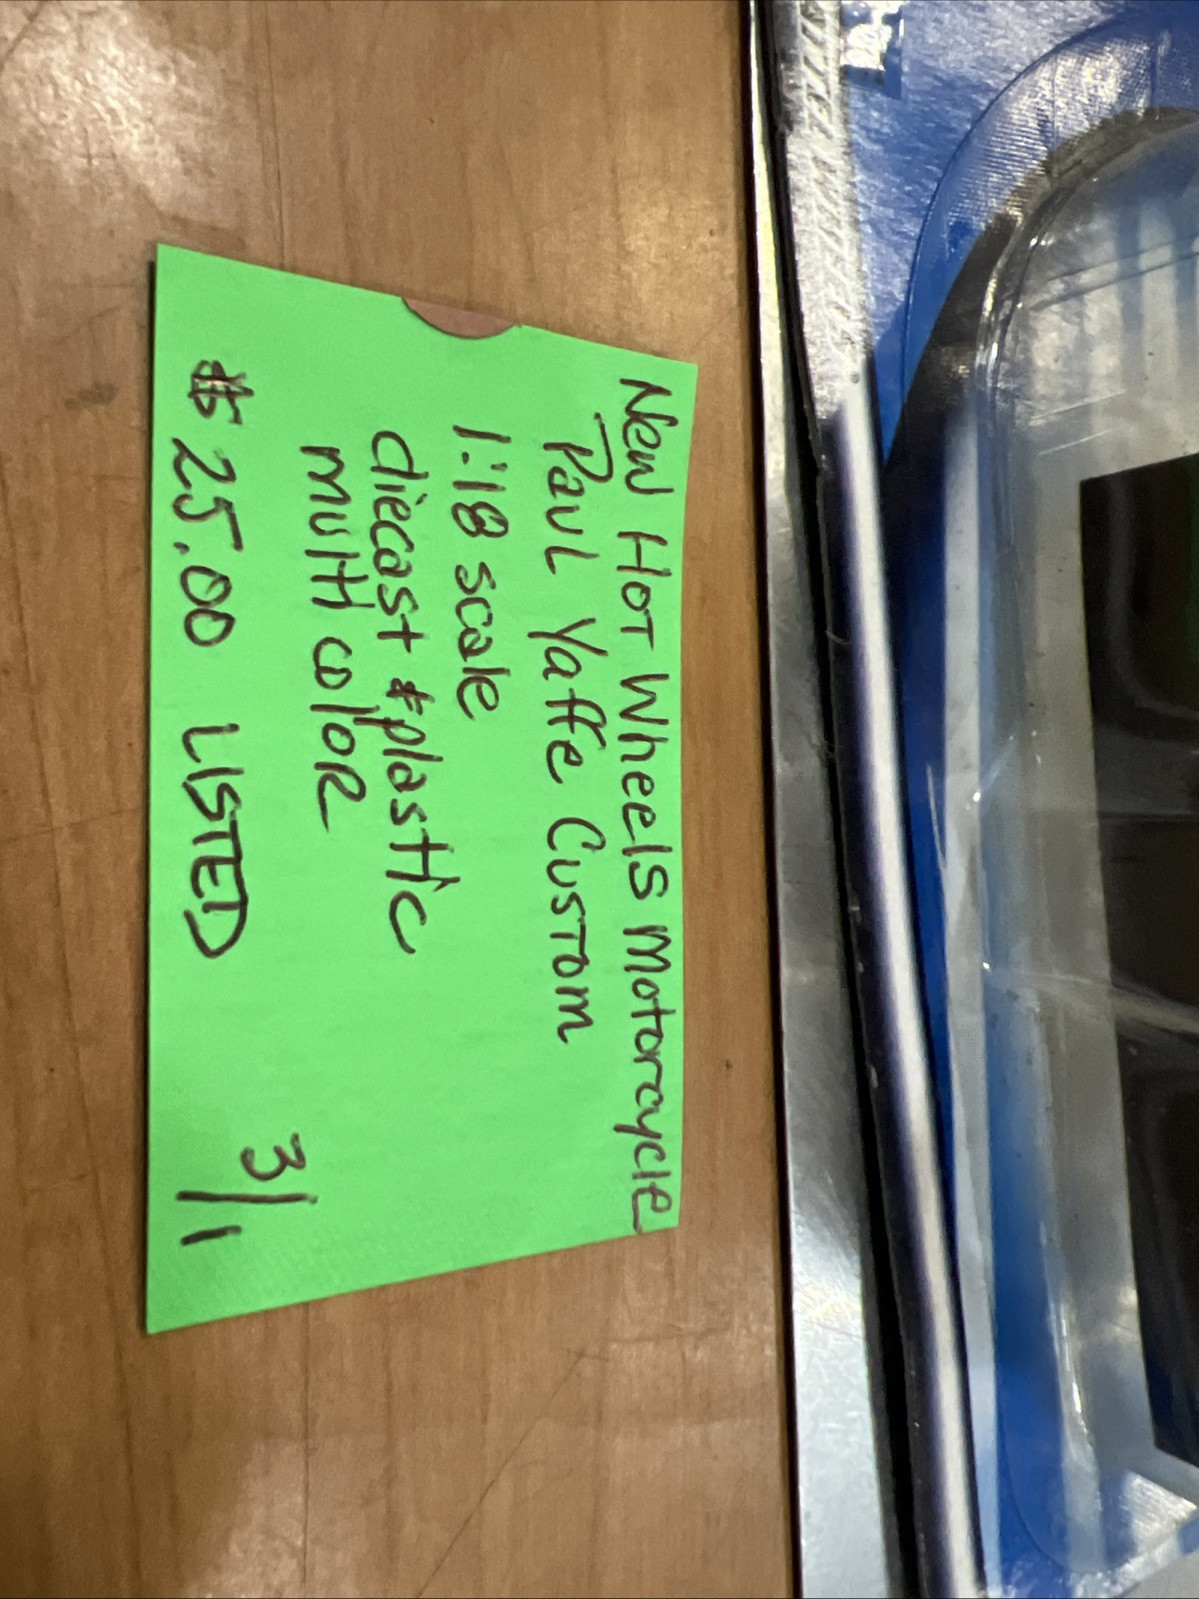 New Hot Wheels Motorcycle
Paul Yaffe Custom
1:18 scale
diecast & plastic
multi color
$25.00 LISTED
3/1